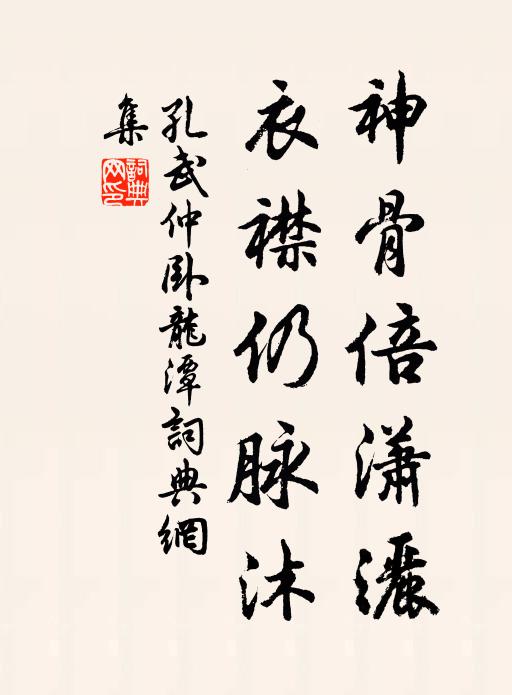 神骨倍瀟灑
衣襟仍脉沐
孔武仲卧龍潭詞典網
集
詞典
网印